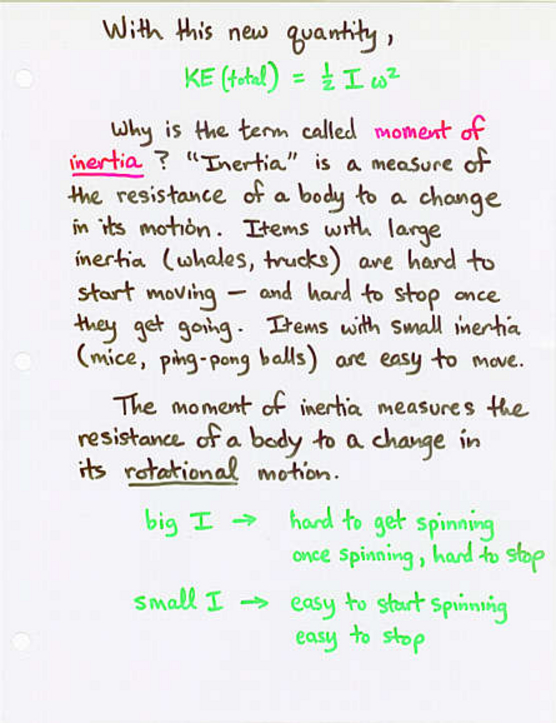 With this new quantity,
KE (total) = ½ I ω²
Why is the term called moment of
inertia ? "Inertia" is a measure of
the resistance of a body to a change
in its motion. Items with large
inertia (whales, trucks) are hard to
start moving — and hard to stop once
they get going. Items with small inertia
(mice, ping-pong balls) are easy to move.
The moment of inertia measures the
resistance of a body to a change in
its rotational motion.
big I → hard to get spinning
once spinning, hard to stop
small I → easy to start spinning
easy to stop